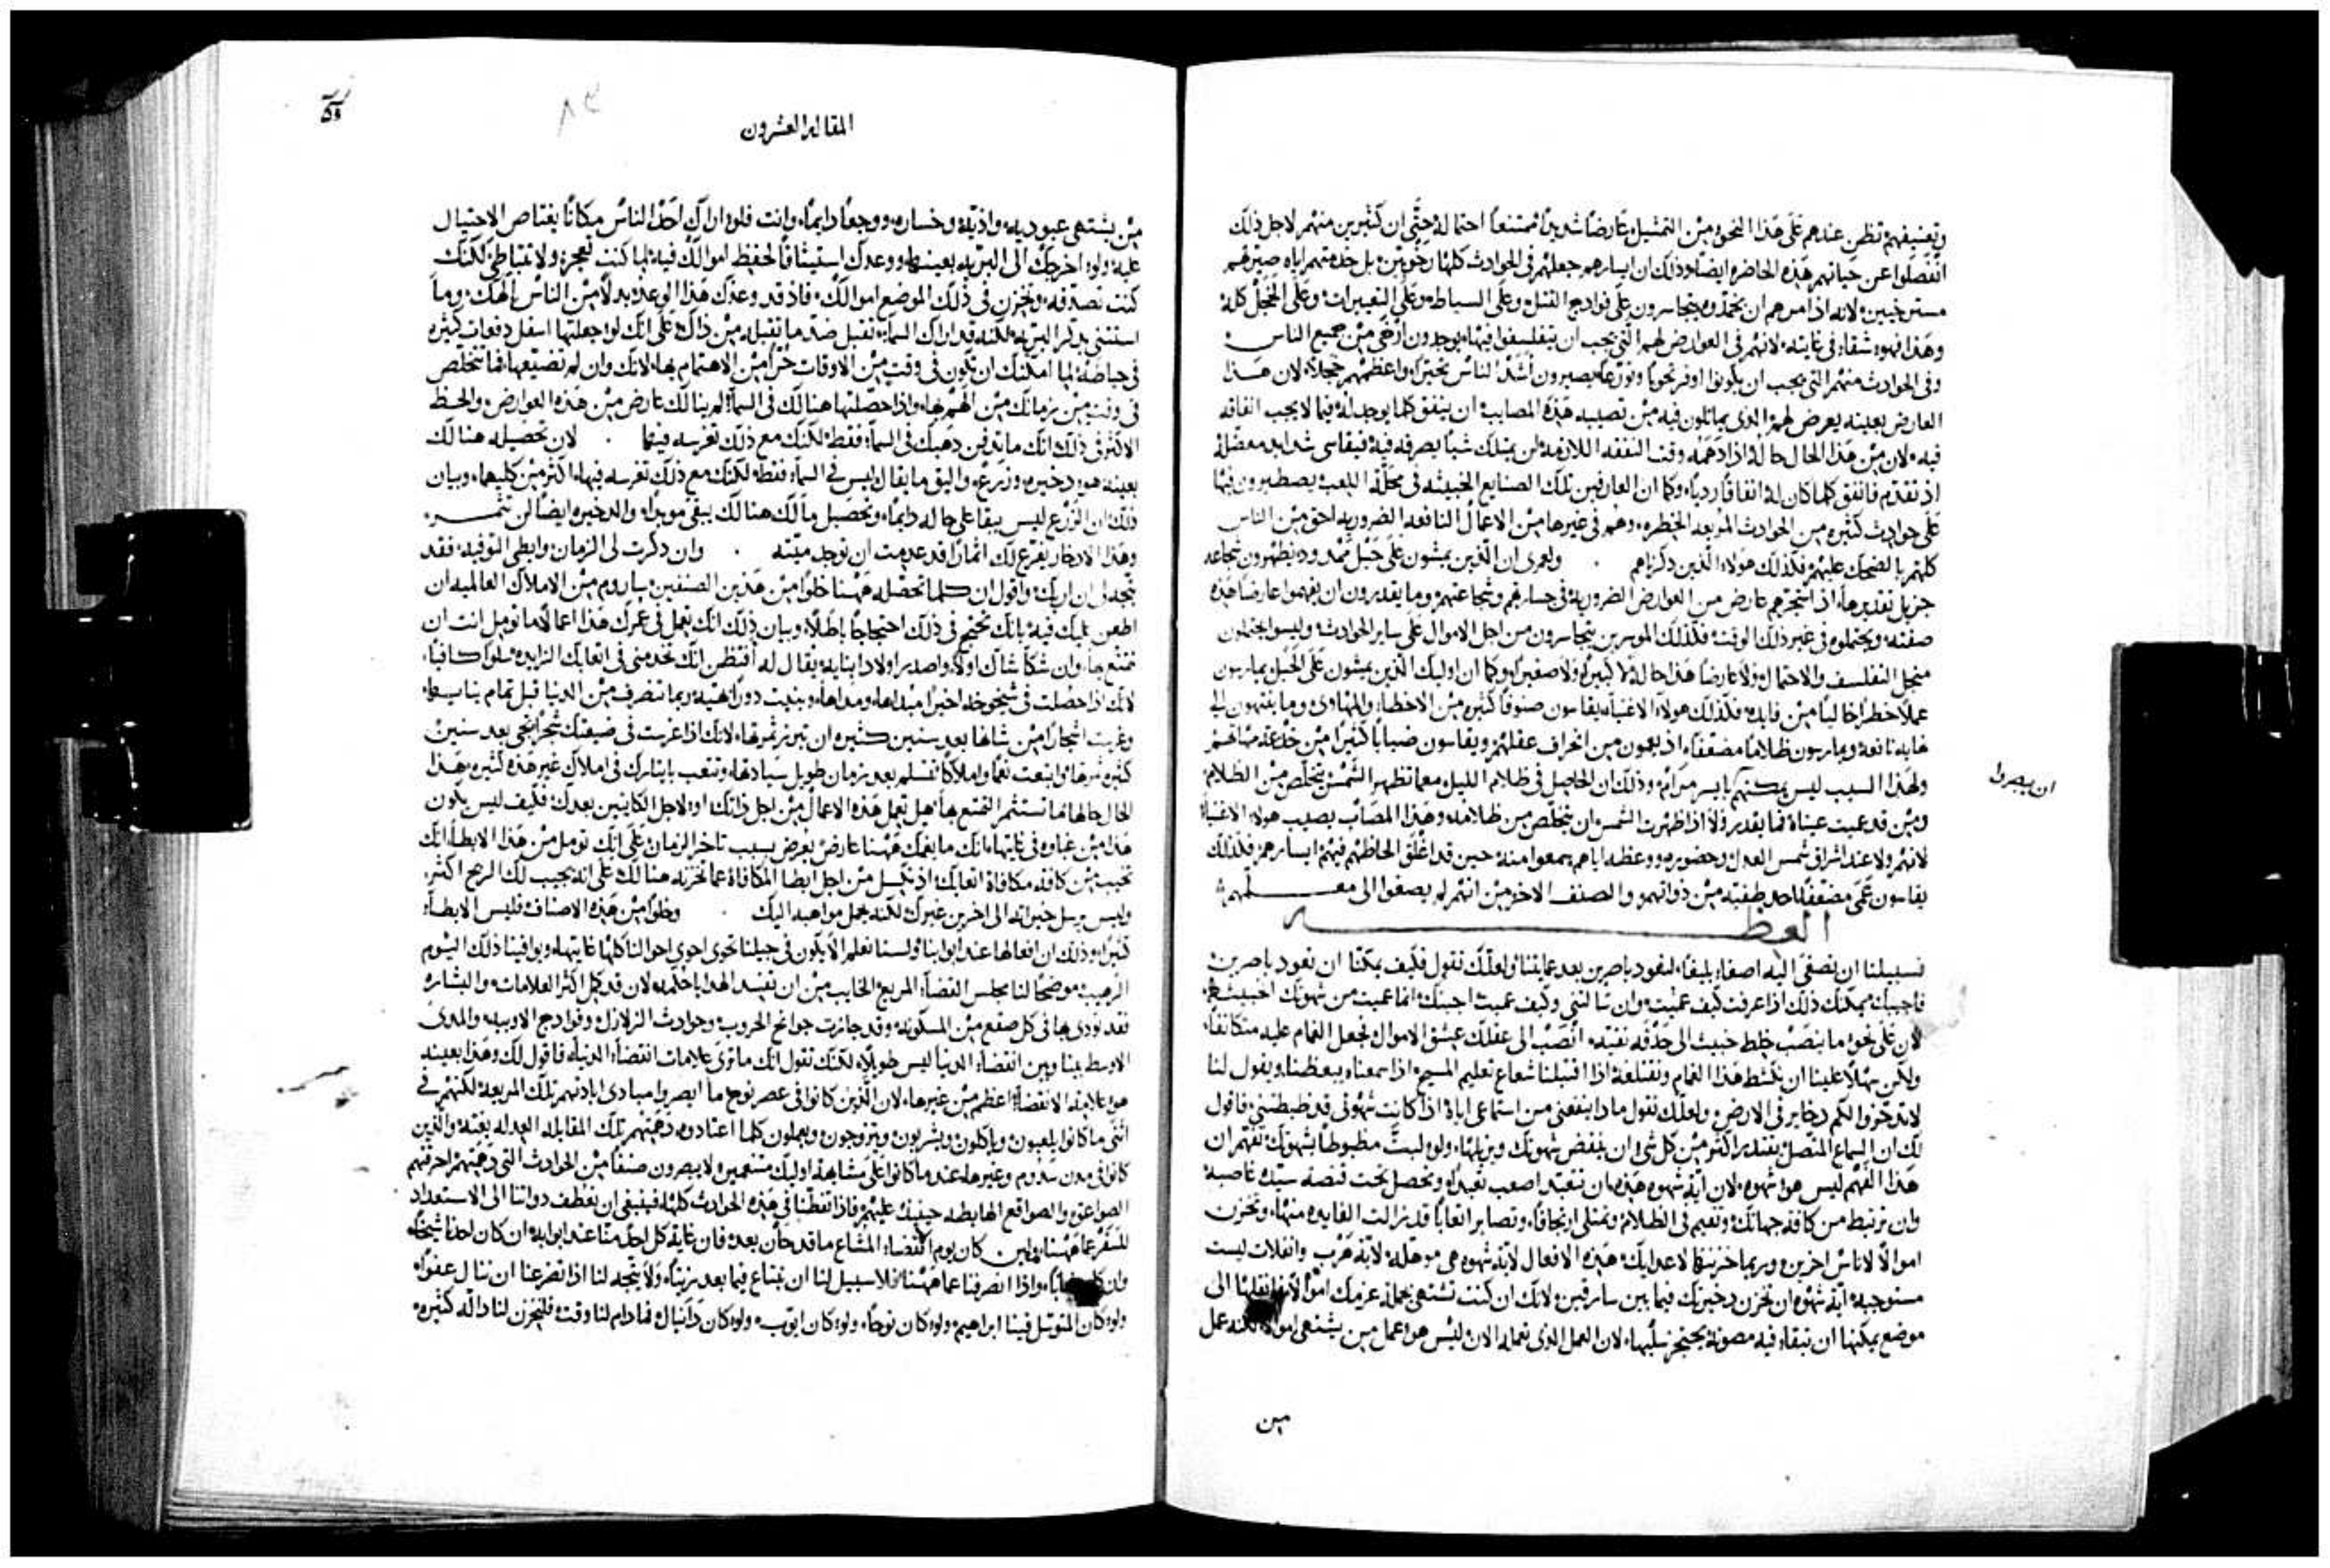 وتعنيفهم تظهر عندهم على هذا النحو من التمثيل عارضاً شديداً ممتنعاً احتماله حتى ان كثيرين منهم لاجل ذلك
انفصلوا عن حياتهم هذه الحاضره ايضاً وذلك ان ايسارهم جعلهم في الحوادث كلها رخويين بل خدمتهم اياه صيرتهم
مسترخيين لانه اذا امرهم ان يخدموه يتجاسرون على فوادح القتل وعلى السياط وعلى التعييرات وعلى الخجل كله
وهذا فهو شقاء في غايته لانهم في العوارض لهم التي يجب ان يتفلسفوا فيها يوجدون ارخى من جميع الناس
وفي الحوادث منهم التي يجب ان يكونوا اوفر تحوباً وتورعاً يصيرون اشد الناس تحيراً واعظمهم خجلاً لان هذا
العارض بعينه يعرض لهم الذي يماثلون فيه من تصيبه هذه المصايب ان ينفق كلما يوجد له فيما لا يجب انفاقه
فيه لان من هذا الحال حاله اذا دهمه وقت النفقه اللازمه لن يملك شياً يصرفه فيه فيقاسي شدايد معضله
اذ تقدم فانفق كلما كان له انفاقاً ردياً وكما ان العارفين تلك الصنايع الخبيثه في محلة اللعب يصطبرون فيها
على حوادث كثيره من الحوادث المربعه الخطره وهم في غيرها من الاعمال النافعه الضروريه احق من الناس
كلهم بالضحك عليهم فكذلك هولاء الذين ذكرناهم ولعمري ان الذين يمشون على حبل ممدود يظهرون شجاعه
جزيل تقديرها اذا استجرهم عارض من العوارض الضروريه في جسارتهم وشجاعتهم وما يقدرون ان يفهموا عارضاً هذه
صفته ويحتملوه في غير ذلك الوقت فكذلك الموسرين يتجاسرون من اجل الاموال على ساير الحوادث وليسوا يحتملون
منجل التفلسف والاحتمال ولا عارضاً هذا حاله لا كبيراً ولا صغيراً وكما ان اوليك الذين يمشون على الحبل يمارسون
عملاً خطراً خالياً من فايده فكذلك هولاء الاغنياء يقاسون صنوفاً كثيره من الاخطار والمهاوي وما ينتهون الى
غايه نافعه ويمارسون ظلاماً مضعفاً اذ يعمون من انحراف عقلهم ويقاسون ضباباً كثيراً من خدعة مهامهم
ولهذا السبب ليس يمكنهم بايسر مرام وذلك ان الحاصل في ظلام الليل معما تظهر الشمس يتخلص من الظلام
ان يبصروا
ومن قد عميت عيناه فما يقدر ولا اذا ظهرت الشمس ان يتخلص من ظلامه وهذا المصاب يصيب هولاء الاغنياء
لانهم ولا عند اشراق شمس العدل وحضوره ووعظه اياهم يسمعوا منه حين قد اغلق الحاظهم فيهم ايسارهم فلذلك
يقاسون عمى مضعفاً احد صنفيه من ذواتهم والصنف الاخر من انهم لم يصغوا الى معلمهم
العظه
فسبيلنا ان نصغى اليه اصغاء بليغاً لنعود باصرين بعد عمايتنا ولعلك تقول فكيف يمكننا ان نعود باصرين
فاجيبك يمكنك ذلك اذا عرفت كيف عميت وان سالتني وكيف عميت اجبتك انما عميت من شهوتك الخبيثه
لان على نحو ما ينصب خلط خبيث الى حدقه نقيه انصب الى عقلك عشق الاموال فجعل الغمام عليه متكاثفاً
ولكن سهلاً علينا ان نكشط هذا الغمام ونقتلعه اذا اقتبلنا شعاع تعليم المسيح اذا سمعناه يعظنا ويقول لنا
لا تدخروا لكم دخاير في الارض ولعلك تقول ماذا ينفعني من استماعي اياه اذا كانت شهوتي قد ضبطتني فاقول
لك ان السماع المتصل يقتدر اكثر من كل شي ان ينقض شهوتك ويزيلها ولو لبثت مضبوطاً بشهوتك تفهم ان
هذا الفهم ليس هو شهوه لان آية شهوه هذه ان تتعبد اصعب تعبد وتحصل تحت قبضة سيدة غاصبه
وان ترتبط من كافة جهاتك وتقيم في الظلام وتمتلي ارتجافاً وتصابر اتعاباً قد زالت الفايده منها وتخزن
اموالاً لاناس اخرين وربما خزنتها لاعدايك هذه الافعال لاية شهوه هي موهله لاية هرب وانفلات ليست
مستوجبه آية شهوه ان تخزن دخيرتك فيما بين سارقين لانك ان كنت تشتهي بجملة عزمك اموالاً فانقلها الى
موضع يمكنها ان تبقاء فيه مصونة يحتجز سلبها لان العمل الذي تعمله الان ليس هو عمل من يشتهي اموالاً لكنه عمل
من
المقاله العشرون
من يشتهي عبوديه واذيه وخساره ووجعاً دايماً وانت فلو اراك احد الناس مكاناً يعتاص الاحتيال
عليه ولو اخرجك الى البريه بعينها ووعدك استيثاقاً لحفظ اموالك فيه لما كنت تعجز ولا تتباطى لكنك
كنت تصدقه وتخزن في ذلك الموضع اموالك فاذ قد وعدك هذا الوعد بدلاً من الناس الهك وما
استثنى بذكر البريه لكنه قد اراك السماء تقبل ضد ما تقبله من ذاك على انك لو جعلتها اسفل دفعات كثيره
في حياطه لما امكنك ان تكون في وقت من الاوقات حراً من الاهتمام بها لانك وان لم تضيعها فما تتخلص
في وقت من زمانك من الهم بها واذا حصلتها هنالك في السماء لم ينالك عارض من هذه العوارض والحظ
الاكثر في ذلك انك ما تدفن ذهبك في السماء فقط لكنك مع ذلك تغرسه فيها لان تحصيله هنالك
بعينه هو دخيره وزرع واليق ما يقال ليس في السماء فقط لكنك مع ذلك تغرسه فيها اكثر من كليهما وبيان
ذلك ان الزرع ليس يبقا على حاله دايماً وتحصيل مالك هنالك يبقى موبداً والدخيره ايضاً لن تثمر
وهذا الادخار يفرع لك اثماراً قد عدمت ان توجد ميته وان ذكرت لي الزمان وابطى التوفيه فقد
يتجه لي ان اريك واقول ان كلما تحصله ههنا خلواً من هذين الصنفين باروم من الاملاك العالميه ان
اطعن عليك فيه بانك تحتج في ذلك احتجاجاً باطلاً وبيان ذلك انك تعمل في عمرك هذا اعمالاً ما تومل انت ان
تتمتع بها وان شكا شاك اولاد واصدر اولاد ابنايه يقال له افتظن انك تخدمني في اتعابك الزايده سلواً كافياً
لانك اذا حصلت في شيخوخه اخيراً وبنيت دوراً بهيه ربما تنصرف من الدنيا قبل تمام بنايها
وغرست اشجاراً من شانها بعد سنين كثيره ان تبرز ثمرتها لانك اذا غرست في ضيعتك شجراً يجي بعد سنين
كثيره ثمرها وابتعت نعماً واملاكاً تتسلم بعد زمان طويل سيادتها وتتعب بايثارك في املاك غير هذه كثيره بهذا
الحال حالها ما تستثمر التمتع بها هل تعمل هذه الاعمال من اجل ذاتك او لاجل الكاينين بعدك فكيف ليس يكون
هذا من غباوه في غايتها انك ما يغمك ههنا عارض يعرض بسبب تاخر الزمان على انك تومل من هذا الابطاء انك
تخيب من كافة مكافاة اتعابك اذ تكسل من اجل ابطا المكافاة عما تخزنه هنالك على انه يجيب لك الربح اكثر
وليس يرسل خيراته الى اخرين غيرك لكنه يحمل مواهبه اليك وخلواً من هذه الاصناف فليس الابطاء
كثيراً وذلك ان افعالها عند ابوابنا ولسنا نعلم الا يكون في جيلنا تحوي احوالنا كلها غايتها ويوافينا ذلك اليوم
الرهيب موضحاً لنا مجلس القضاء المريع الخايب من ان تفيد الهدايا حكمه لان قد كمل اكثر العلامات والبشاره
فقد نودي بها في كل صقع من المسكونه وقد جازت جوايح الحروب وحوادث الزلازل وفوادح الاوبيه والمدى
الاوسط بيننا وبين انقضاء الدنيا ليس طويلاً لكنك تقول انك ما ترى علامات انقضاء الدنيا فاقول لك وهذا بعينه
هو علامة الانقضاء اعظم من غيرها لان الذين كانوا في عصر نوح ما ابصروا مبادي ابادتهم تلك المريعه لكنهم في
اثنى ما كانوا يلعبون وياكلون ويشربون ويتزوجون ويعملون كلما اعتادوه دهمتهم تلك المقابله العدله بغته والذين
كانوا في مدن سدوم وغيرها عند ما كانوا على مشابهة اوليك متنعمين لا يبصرون صنفاً من الحوادث التي دهمتهم احرقتهم
الصواعق والصواقع الهابطه حينيذ عليهم فاذا تفطنا في هذه الحوادث كلها فينبغي ان نعطف ذواتنا الى الاستعداد
للسفر عما ههنا ولين كان يوم انقضاء المشاع ما قد حان بعد فان غاية كل احد منا عند ابوابه ان كان احدنا شيخاً
وان كان شاباً واذا انصرفنا عما ههنا فلا سبيل لنا ان نبتاع فيما بعد زيتاً ولا يتجه لنا اذا تضرعنا ان ننال عفواً
ولو كان المتوسل فينا ابراهيم ولو كان نوحاً ولو كان ايوب ولو كان دانيال فما دام لنا وقت فلنخزن لنا دالّه كثيره